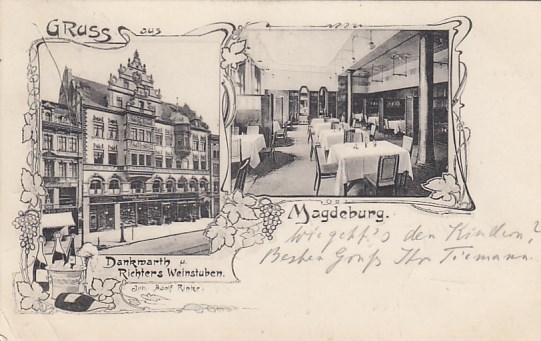 Gruss aus
Magdeburg.
Dankwarth u.
Richters Weinstuben.
Inh. Adolf Rinke.
Wie geht's den Kindern?
Besten Gruß Ihr Tiemann.